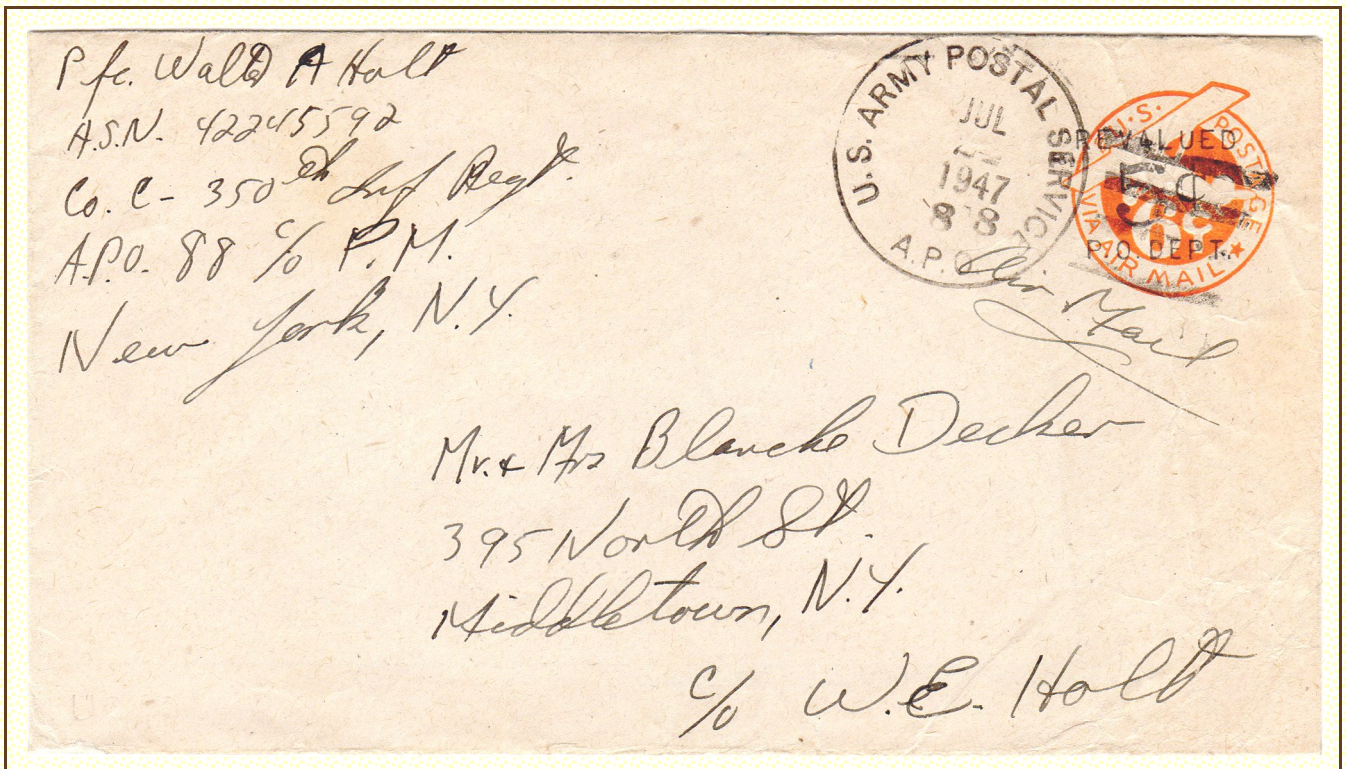 Pfc. Walt A Holt
A.S.N. 42245592
Co. C - 350th Inf Regt.
A.P.O. 88 c/o P.M.
New York, N.Y.
U.S. ARMY POSTAL SERVICE
JUL
1947
8 8
A.P.O.
U.S. POSTAGE
REVALUED
5¢
P.O. DEPT.
6¢
VIA AIR MAIL
Air Mail
Mr. & Mrs Blanche Decker
395 North St.
Middletown, N.Y.
c/o W.E. Holt